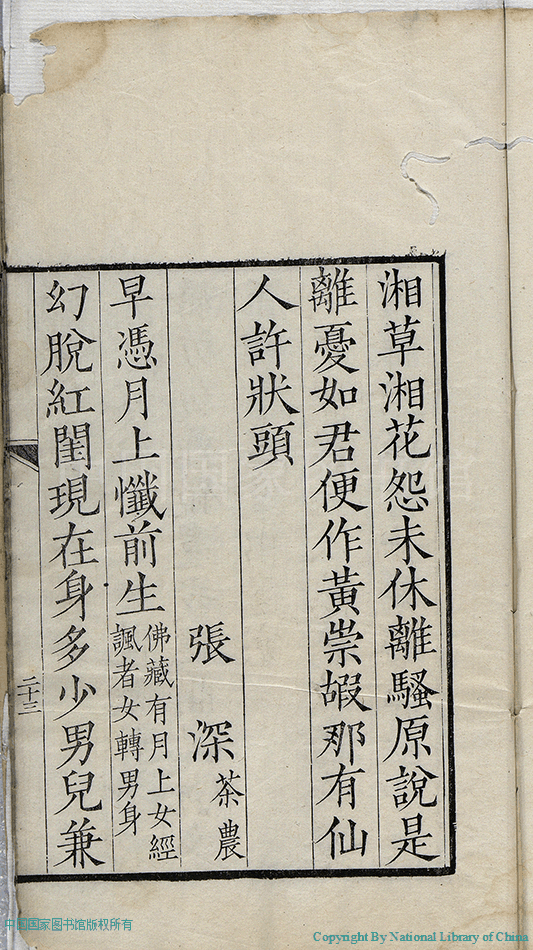 湘草湘花怨未休離騷原說是
離憂如君便作黃崇嘏那有仙
人許狀頭
張深茶農
早憑月上懺前生佛藏有月上女經
諷者女轉男身
幻脫紅閨現在身多少男兒兼
二十三
中国国家图书馆版权所有
Copyright By National Library of China